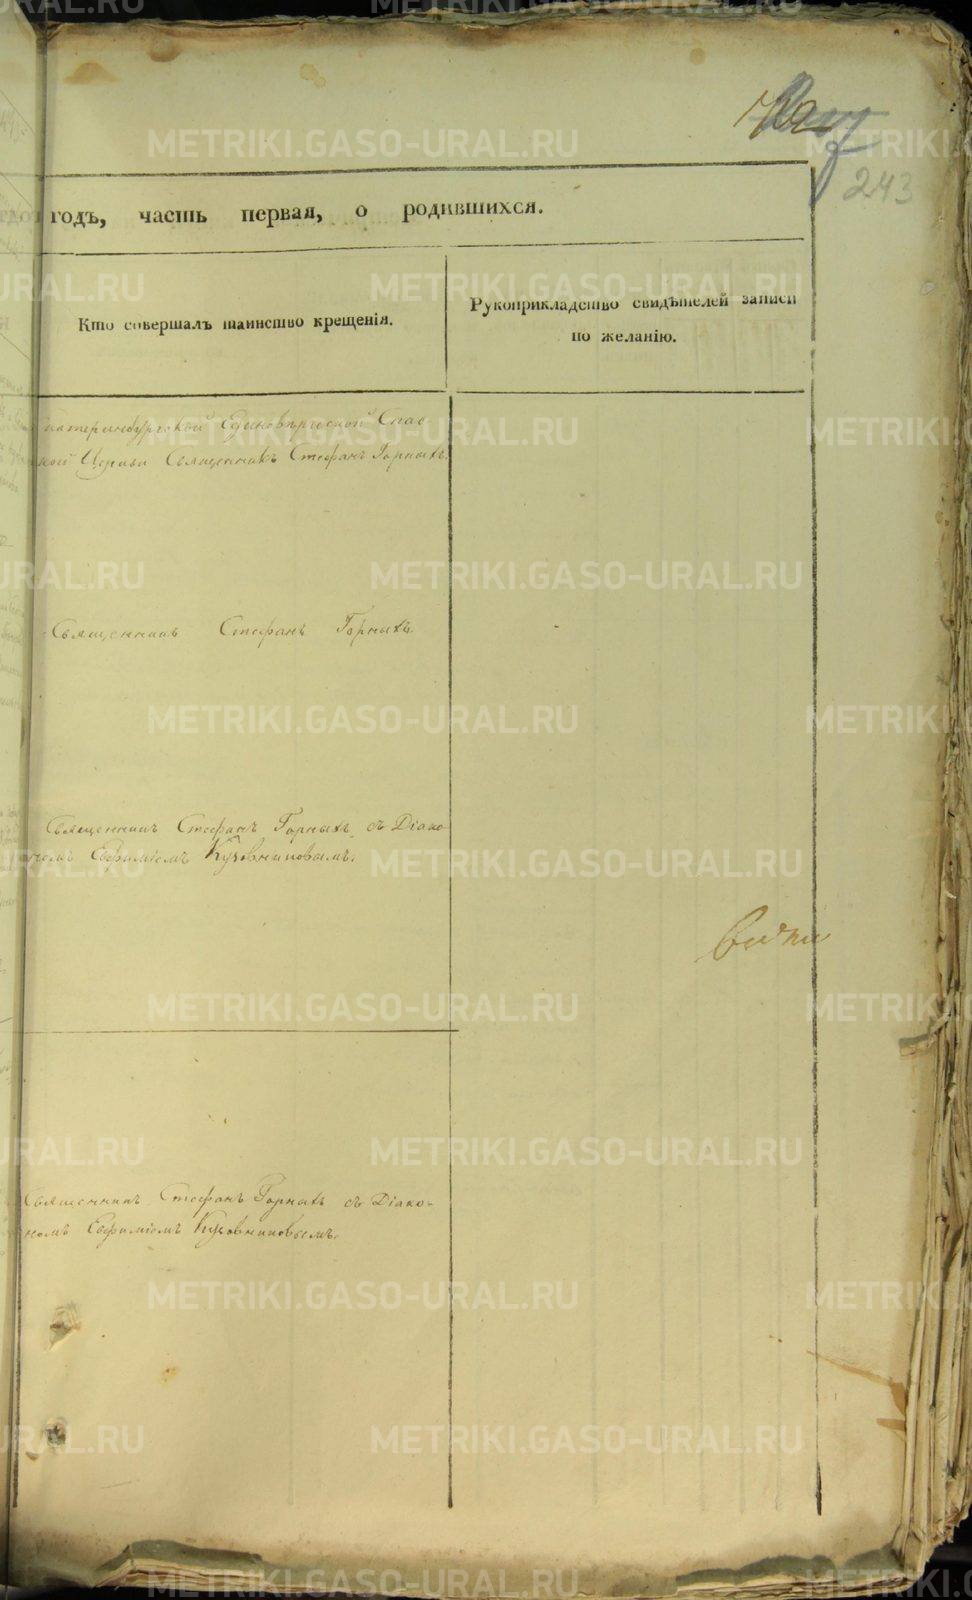 243
годъ, часть первая, о родившихся.
Кто совершалъ таинство крещенія.
Рукоприкладство свидѣтелей записи
по желанію.
Екатеринбургской Единовѣрческой Спас
ской Церкви Священникъ Стефанъ Горныхъ.
Священникъ Стефанъ Горныхъ.
Священникъ Стефанъ Горныхъ съ Діако
номъ Евфиміемъ
Священникъ Стефанъ Горныхъ съ Діако-
номъ Евфиміемъ
METRIKI.GASO-URAL.RU